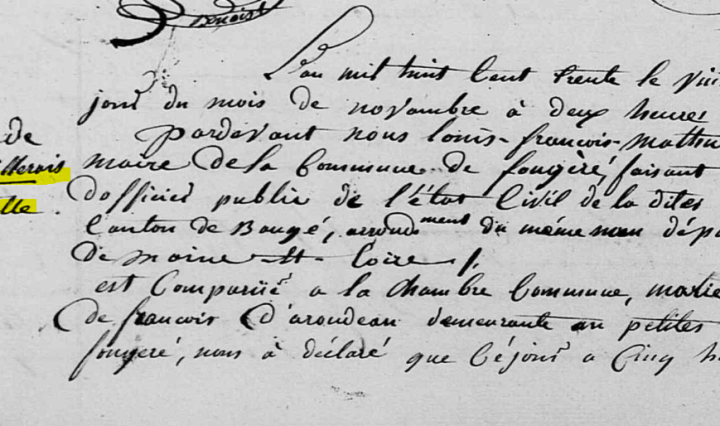 Benoist
L'an mil huit Cent trente le
jour du mois de novambre à deux heures
de pardevant nous louis-françois-mathu
llerais maire dela Commune de fougèré, faisant
lle d'officier public de l'état Civil de la dites
Canton de Baugé, arrondment du même nom dépa
de maine et Loire /.
est Comparüe a la Chambre Commune,
de francois demeurante au petites
fougeré, nous à déclaré que Céjour a Cinq h